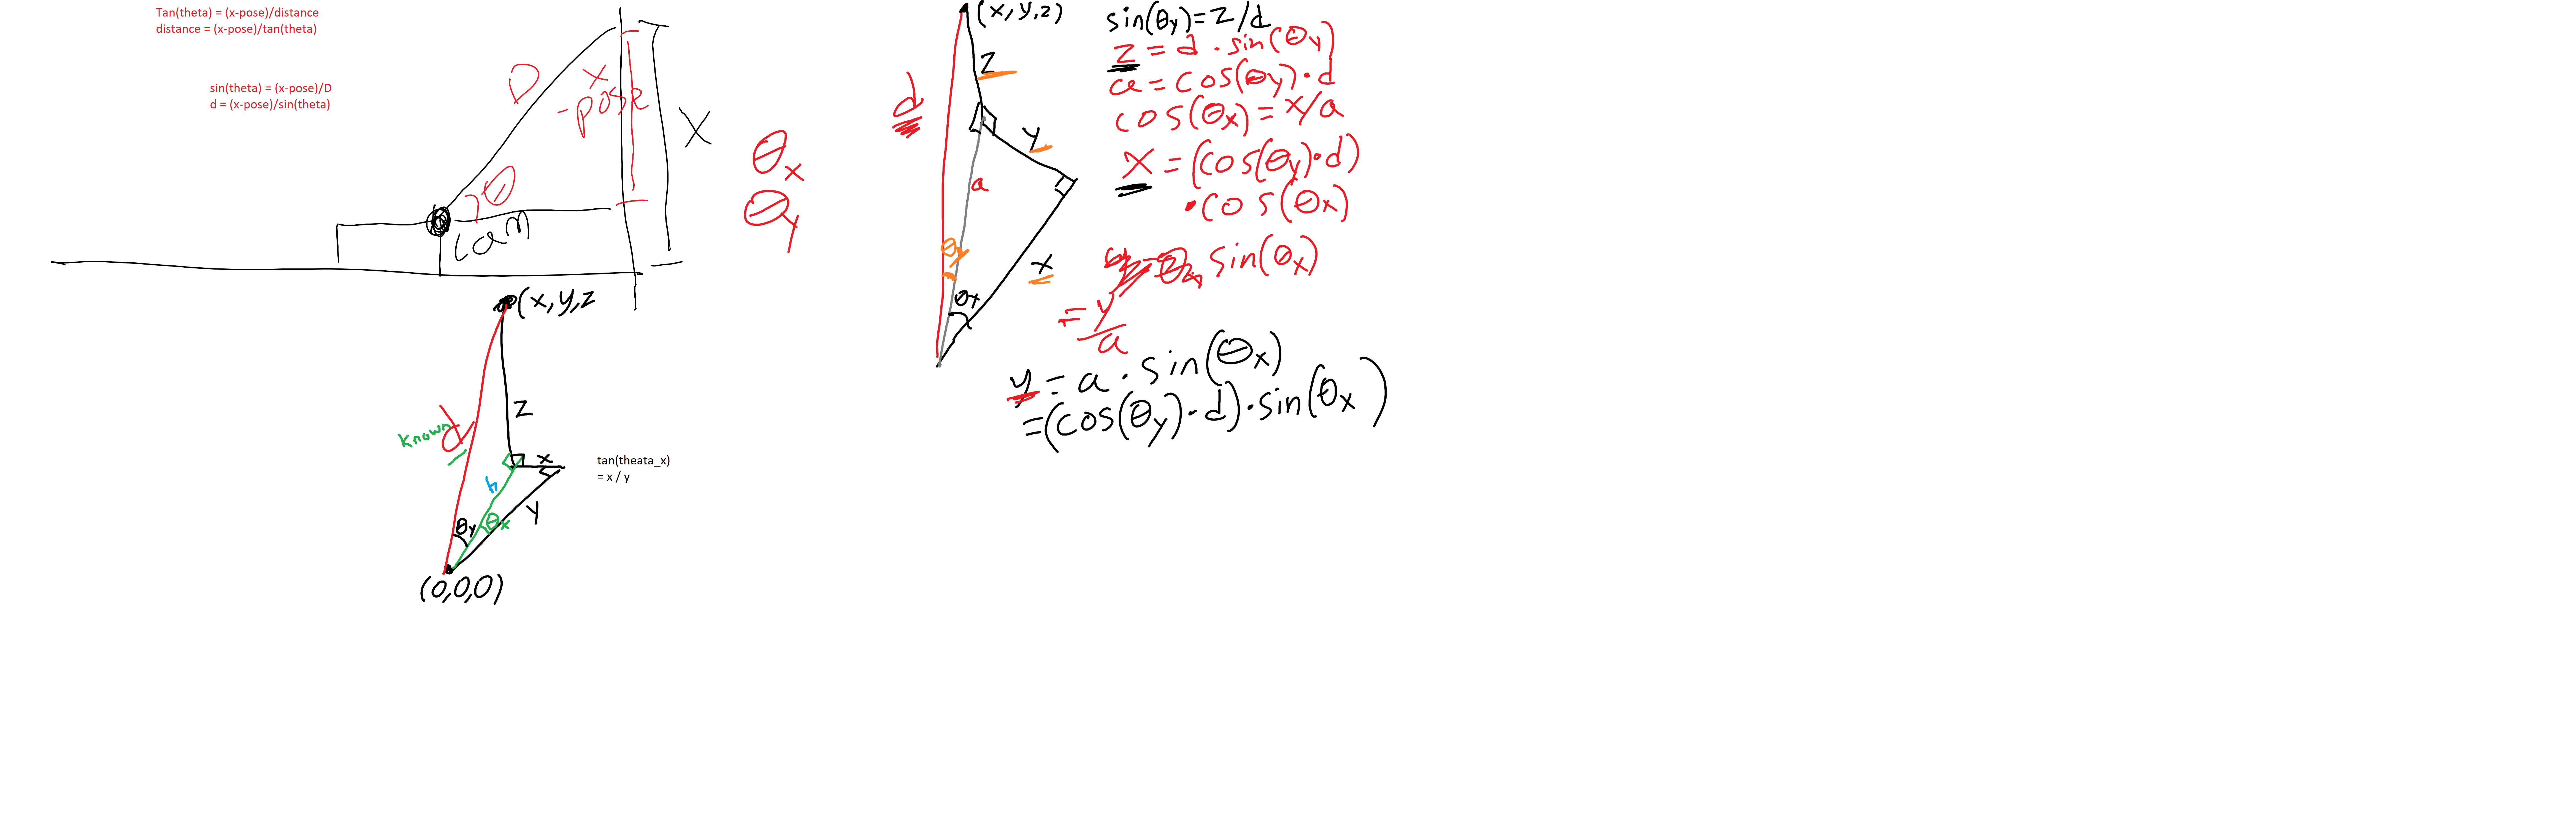 Tan(theta) = (x-pose)/distance
distance = (x-pose)/tan(theta)
sin(theta) = (x-pose)/D
d = (x-pose)/sin(theta)
D
x
-pose
X
θ
cam
θx
θy
(x,y,z
z
known
d
x
h
y
θy
θx
(0,0,0)
tan(theata_x)
= x / y
(x,y,z)
z
d
y
a
θy
x
θx
sin(θy)=z/d
z = d · sin(θy)
a = cos(θy)·d
cos(θx) = x/a
x = (cos(θy)·d)
·cos(θx)
sin(θx)
= y/a
y = a · sin(θx)
=(cos(θy)·d)·sin(θx)